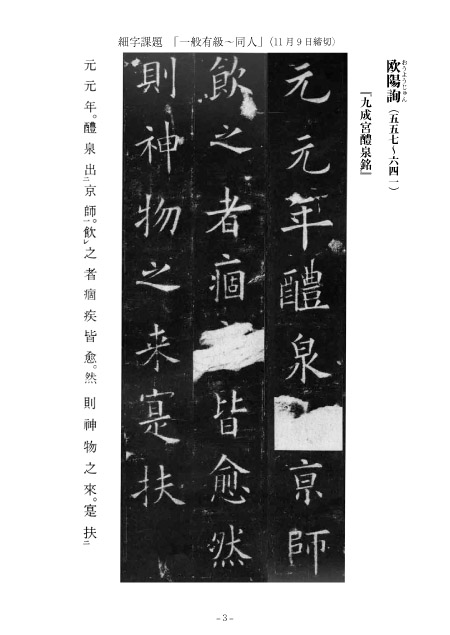 細字課題 「一般有級～同人」(11月9日締切)
欧陽詢（五五七～六四一）
おうようじゅん
『九成宮醴泉銘』
元元年醴泉京師
飲之者痼皆愈然
則神物之来寔扶
元元年。醴泉出二京師一。飲レ之者痼疾皆愈。然則神物之來。寔扶二
－3－